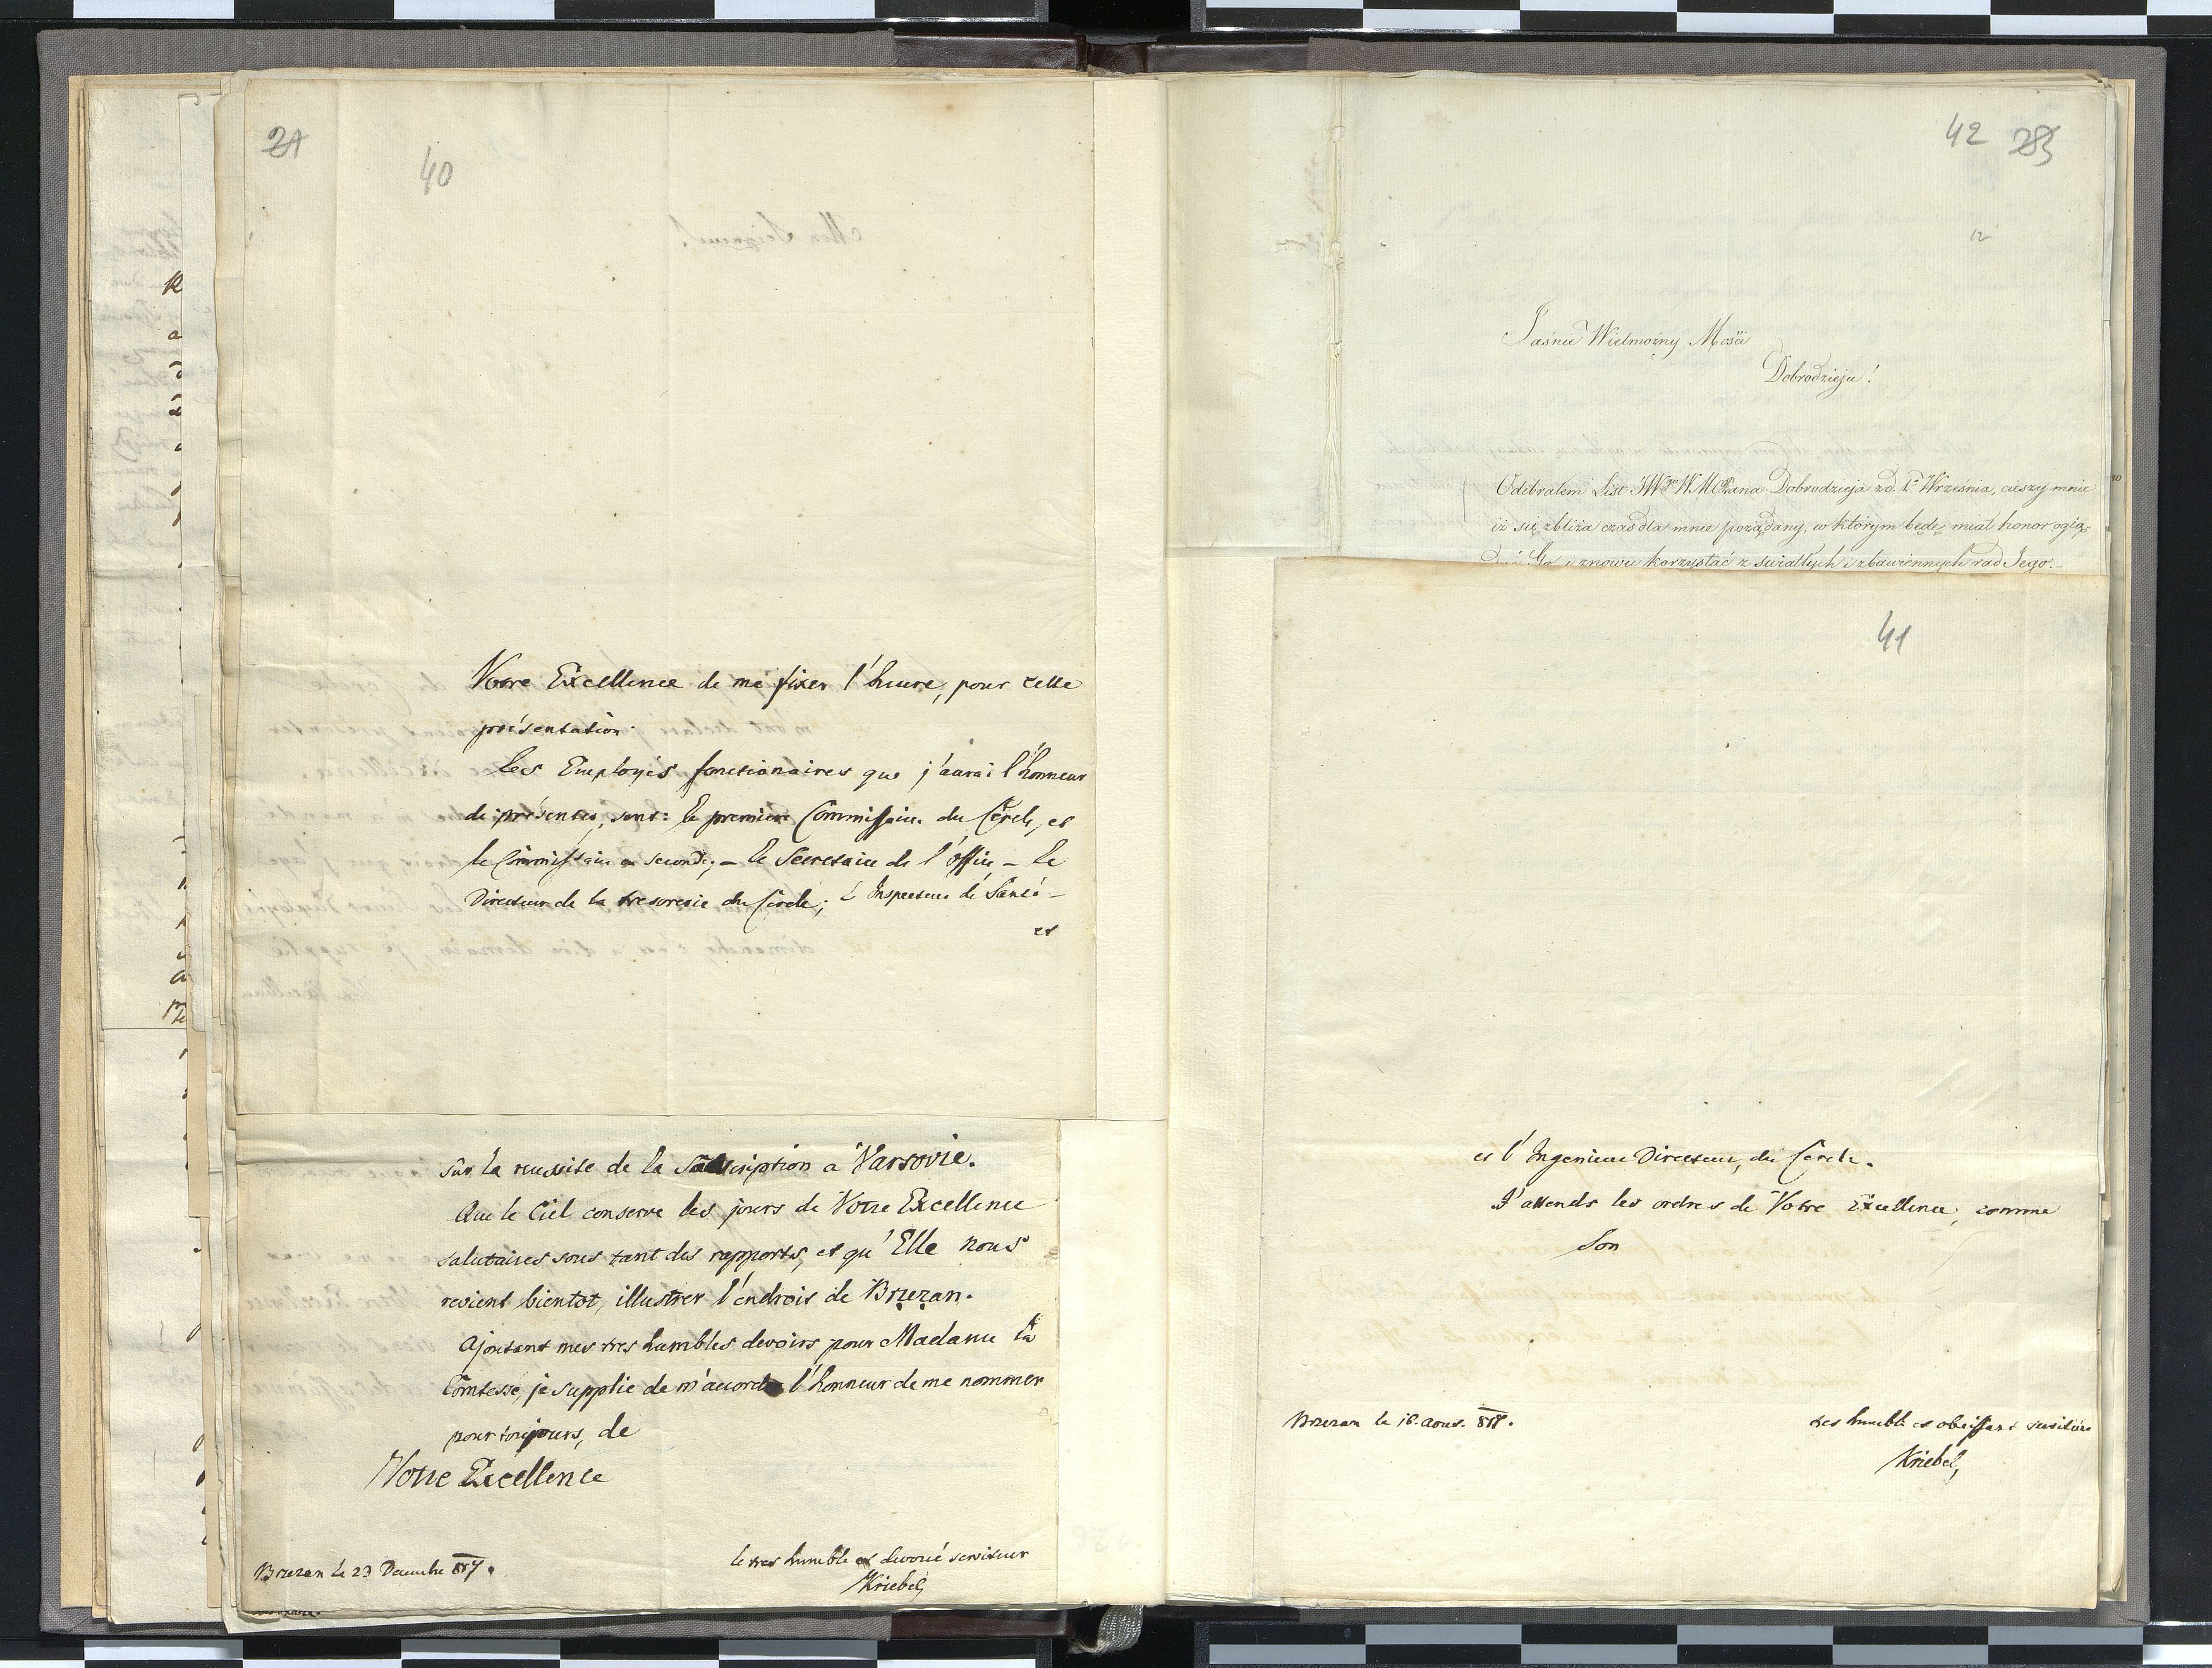 21
40
Votre Excellence de me fixer l'heure, pour cette
présentation.
Les Employés fonctionaires que j'aurai l'honneur
de présenter, sont: le premier Commissaire du Cercle, et
le Commissaire en second; – le Secretaire de l'office – le
Directeur de la tresorerie du Cercle; L'Inspecteur de Santé –
et
sur la reussite de la Subscription a Varsovie.
Que le Ciel conserve les jours de Votre Excellence
salutaires sous tant des rapports, et qu'Elle nous
revient bientot, illustrer l'endroit de Brzezan.
Ajoutant mes tres humbles devoirs pour Madame la
Comtesse, je supplie de m'accorder l'honneur de me nommer
pour toujours, de
Votre Excellence
Brzezan le 23 Decembre 817.
le tres humble et devoué serviteur
Kriebel
42 23
12
Jaśnie Wielmożny Mości
Dobrodzieju!
Odebrałem List JW WMPana Dobrodzieja z d. 1º Września, cieszy mnie
iż się zbliża czas dla mnie pożądany, w którym będę miał honor oglą-
dać Go i znowu korzystać z światłych i zbawiennych rad Jego. –
41
et l'Ingenieur Directeur, du Cercle.
J'attends les ordres de Votre Excellence, comme
Son
Brzezan le 16. Aout. 818.
tres humble et obeissant serviteur
Kriebel